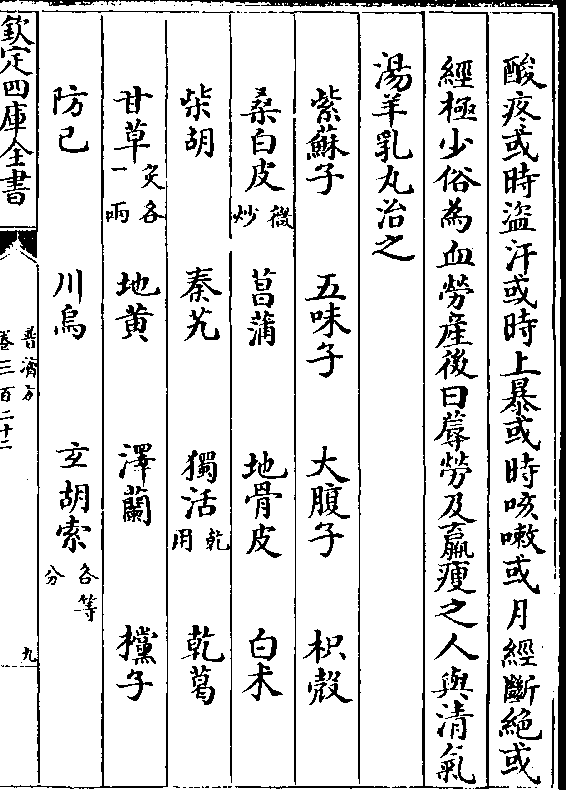 酸疼或時盜汗或時上暴或時咳嗽或月經斷絶或
經極少俗為血勞產後曰蓐勞及羸瘦之人與清氣
湯羊乳丸治之
紫蘇子 五味子 大腹子 枳殼
桑白皮微炒 菖蒲 地骨皮 白术
柴胡 秦艽 獨活乾用 乾葛
甘草炙各一兩 地黄 澤蘭 欓子
防已 川烏 玄胡索各等分
欽定四庫全書
普濟方
卷三百二十二
九